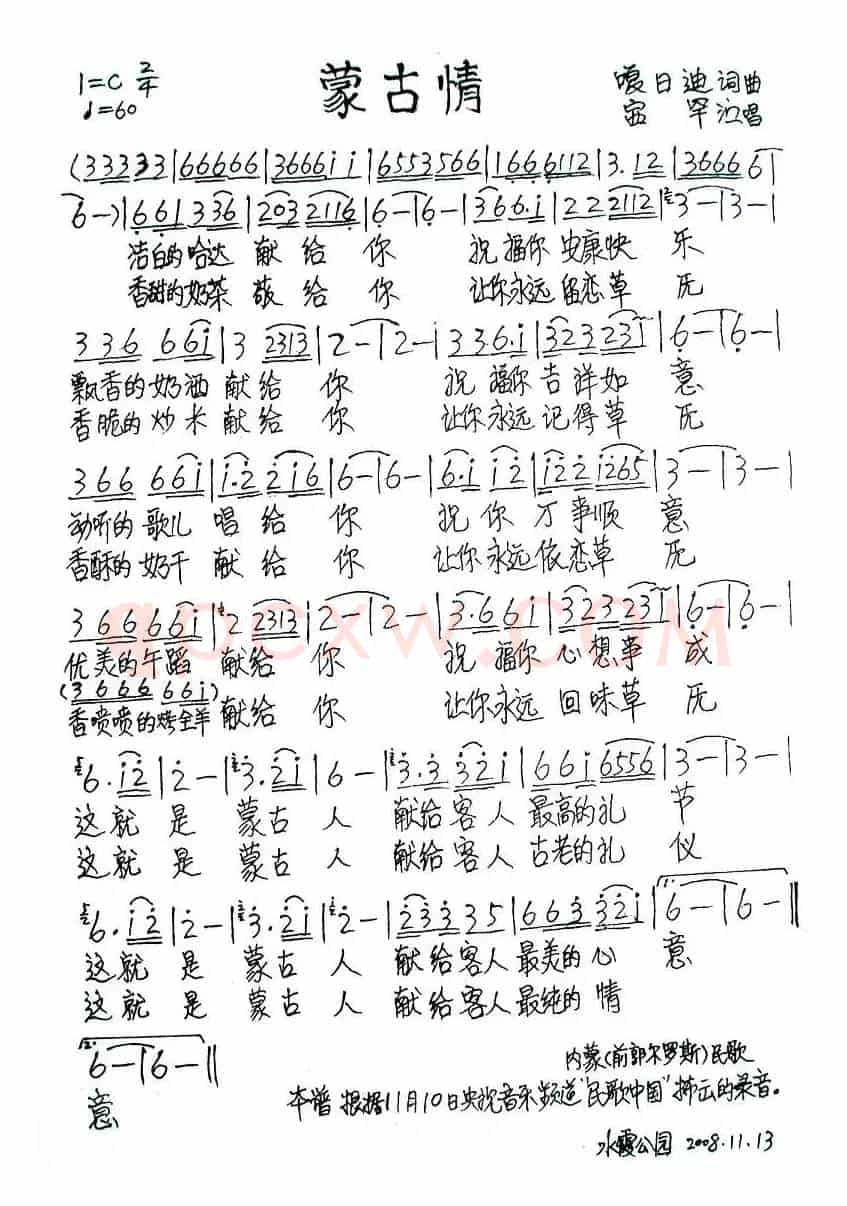 1=C 2/4
♩=60
蒙古情
嘎日迪词曲
演唱
(33333|66666|3666i i|6553566|1666112|3.12|3666 6|
6-)|661 336|203 2116|6-|6-|366.i|222 2112|3-|3-|
洁白的哈达 献给你 祝福你安康快乐
香甜的奶茶 敬给你 让你永远留恋草原
336 66i|3 2313|2-|2-|336.i|323 23i|6-|6-|
飘香的奶酒献给你 祝福你吉祥如意
香脆的炒米献给你 让你永远记得草原
366 66i|i.2 2i6|6-|6-|6.i i2|i22 i265|3-|3-|
动听的歌儿唱给你 祝你万事顺意
香酥的奶干献给你 让你永远依恋草原
366 66i|2 2313|2-|2-|3.66i|323 23i|6-|6-|
优美的午蹈献给你 祝福你心想事成
(3666 66i)
香喷喷的烤全羊献给你 让你永远回味草原
6.i2|2-|3.2i|6-|3.3 32i|66i 6556|3-|3-|
这就是蒙古人 献给客人最高的礼节
这就是蒙古人 献给客人古老的礼仪
6.i2|2-|3.2i|2-|233 35|663 32i|6-|6-||
这就是蒙古人 献给客人最美的心意
这就是蒙古人 献给客人最纯的情
6-|6-||
意
内蒙(前郭尔罗斯)民歌
本谱根据11月10日央视音乐频道"民歌中国"播出的录音。
水霞公园 2008.11.13
qpcxw.com